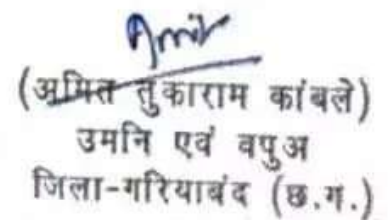 Amit
(अमित तुकाराम कांबले)
उमनि एवं वपुअ
जिला-गरियाबंद (छ.ग.)